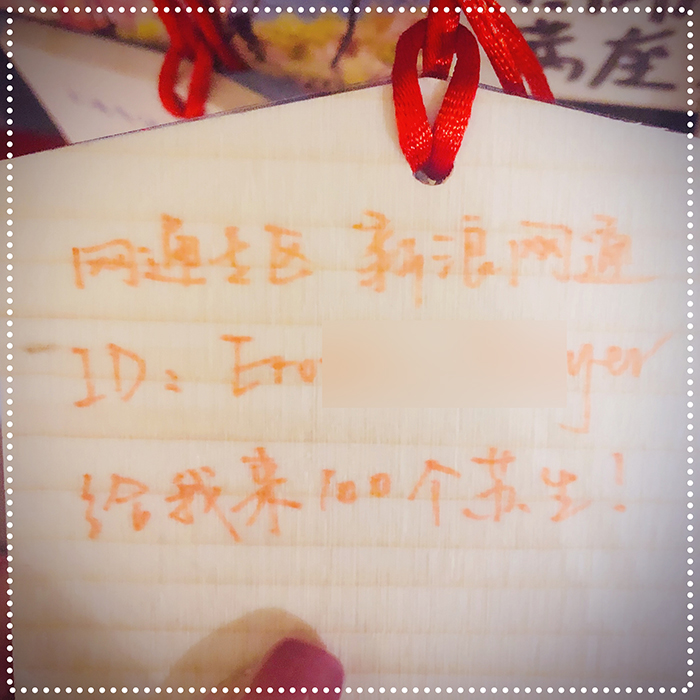 满座
网通专区 新浪网通
ID: Ero yer
给我来100个苏生!